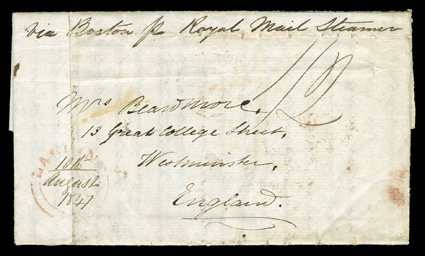 via Boston pr Royal Mail Steamer
1/2
Mrs Beardmore,
13 Great College Street,
Westminster,
England.
10th
August
1847